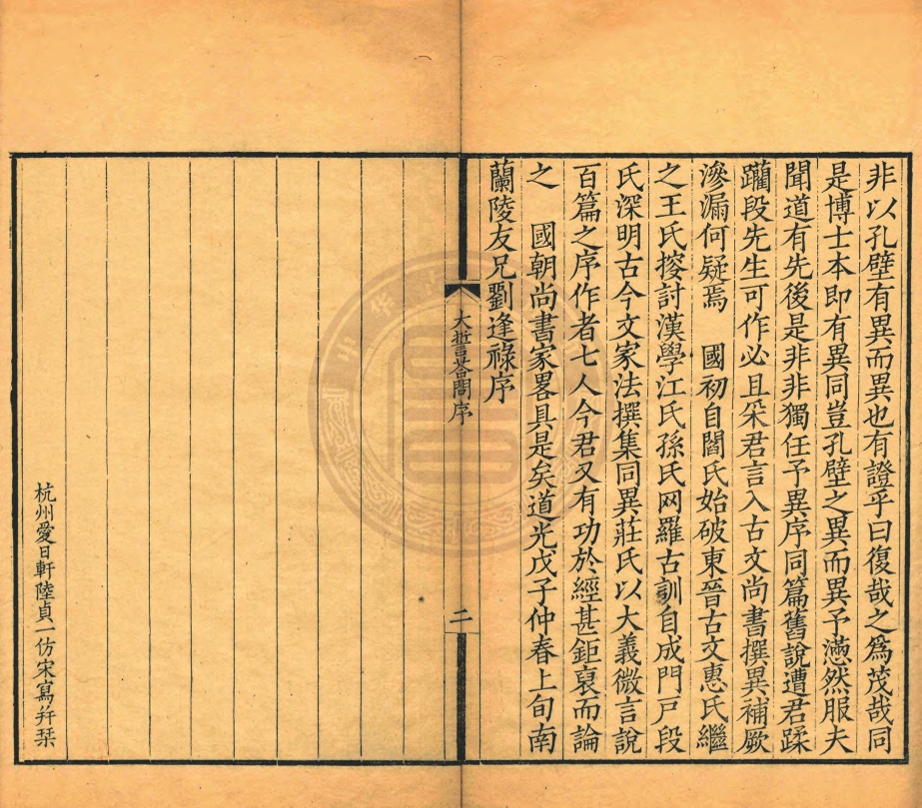 非以孔壁有異而異也有證乎曰復哉之爲茂哉同
是博士本即有異同豈孔壁之異而異予懣然服夫
聞道有先後是非非獨任予異序同篇舊說遭君蹂
躪段先生可作必且采君言入古文尚書撰異補厥
滲漏何疑焉　國初自閻氏始破東晉古文惠氏繼
之王氏搜討漢學江氏孫氏网羅古訓自成門戶段
氏深明古今文家法撰集同異莊氏以大義微言說
百篇之序作者七人今君又有功於經甚鉅裒而論
之　國朝尚書家畧具是矣道光戊子仲春上旬南
蘭陵友兄劉逢祿序
大誓荅問序
二
杭州愛日軒陸貞一仿宋寫并栞